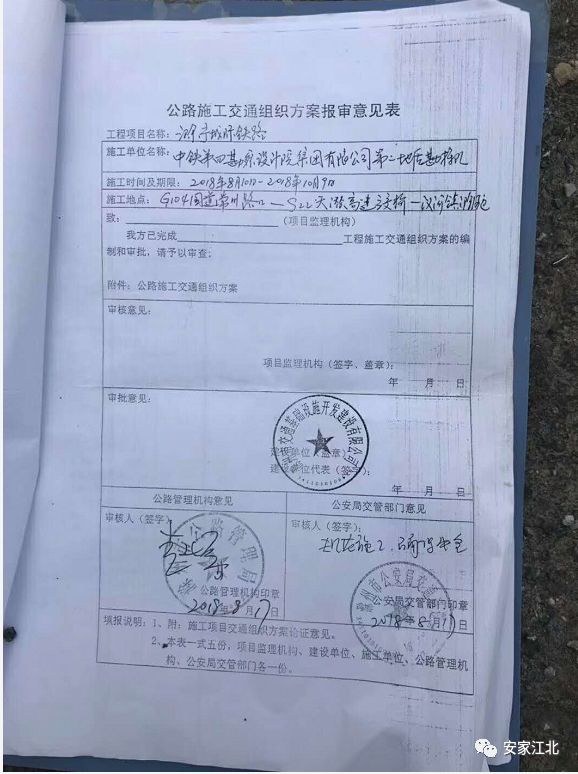 公路施工交通组织方案报审意见表
工程项目名称：滁宁城际铁路
施工单位名称：中铁第四勘察设计院集团有限公司第二地质勘
施工时间及期限：2018年8月10日-2018年10月9日
施工地点：G104国道 路口—S22天 高速 —汊河镇
致：（项目监理机构）
我方已完成工程施工交通组织方案的编
制和审批，请予以审查；
附件：公路施工交通组织方案
审核意见：
项目监理机构（签字、盖章）：
年 月 日
审批意见：
州市交通基础设施开发建设有限公司
建设单位（盖章）
建设单位代表（签字）：
年 月 日
公路管理机构意见
公安局交管部门意见
审核人（签字）：
审核人（签字）：
施工 安全
公路管理局
公路管理机构印章
2018年8月17日
州市公安局交
公安局交管部门印章
2018年8月17日
填报说明：1、附：施工项目交通组织方案论证意见。
2、本表一式五份，项目监理机构、建设单位、施工单位、公路管理机
构、公安局交管部门各一份。
安家江北